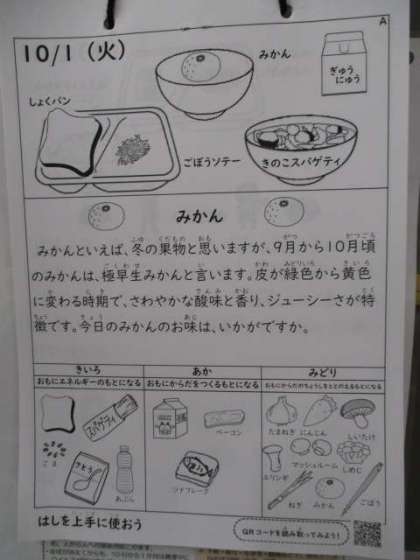 A
10/1（火）
みかん
ぎゅうにゅう
しょくパン
ごぼうソテー
きのこスパゲティ
みかん
みかんといえば、冬の果物と思いますが、9月から10月頃
のみかんは、極早生みかんと言います。皮が緑色から黄色
に変わる時期で、さわやかな酸味と香り、ジューシーさが特
徴です。今日のみかんのお味は、いかがですか。
きいろ
おもにエネルギーのもとになる
あか
おもにからだをつくるもとになる
みどり
おもにからだのちょうしをととのえるもとになる
スパゲティ
ごま
さとう
あぶら
ベーコン
ツナフレーク
たまねぎ
にんじん
しいたけ
エリンギ
マッシュルーム
しめじ
ねぎ
みかん
ごぼう
はしを上手に使おう
QRコードを読み取ってみよう！